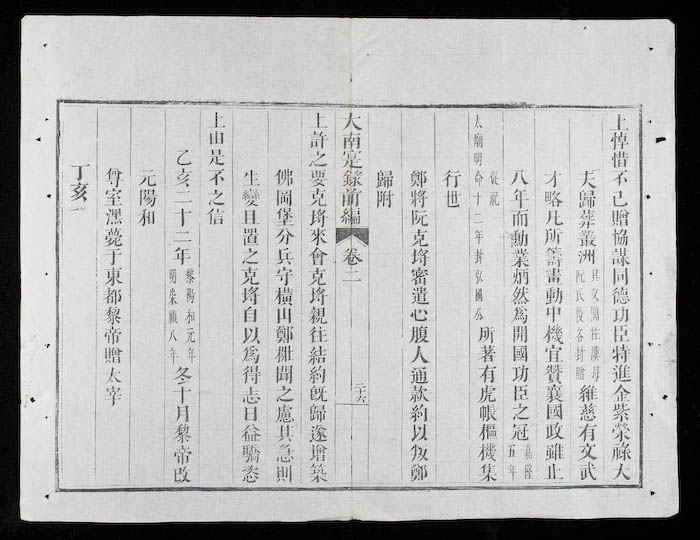 上悼惜不已贈協謀同德功臣特進金紫榮祿大
夫歸葬叢洲 阮氏後各封贈 維慈有文武
才略凡所籌畫動中機宜贊襄國政雖止
八年而勳業炳然爲開國功臣之冠 嘉隆五年
從祀
太廟明命十二年封弘國公 所著有虎帳樞機集
行世
鄭將阮克埒密遣心腹人通款約以叛鄭
歸附
大南寔錄前編 卷二 二十六
上許之要克埒來會克埒親往結約旣歸遂增築
佛岡堡分兵守橫山鄭梉聞之慮其急則
生變且置之克埒自以爲得志日益驕恣
上由是不之信
乙亥二十二年 黎陽和元年 明崇禎八年 冬十月黎帝改
元陽和
尊室潶薨于東都黎帝贈太宰
丁亥一